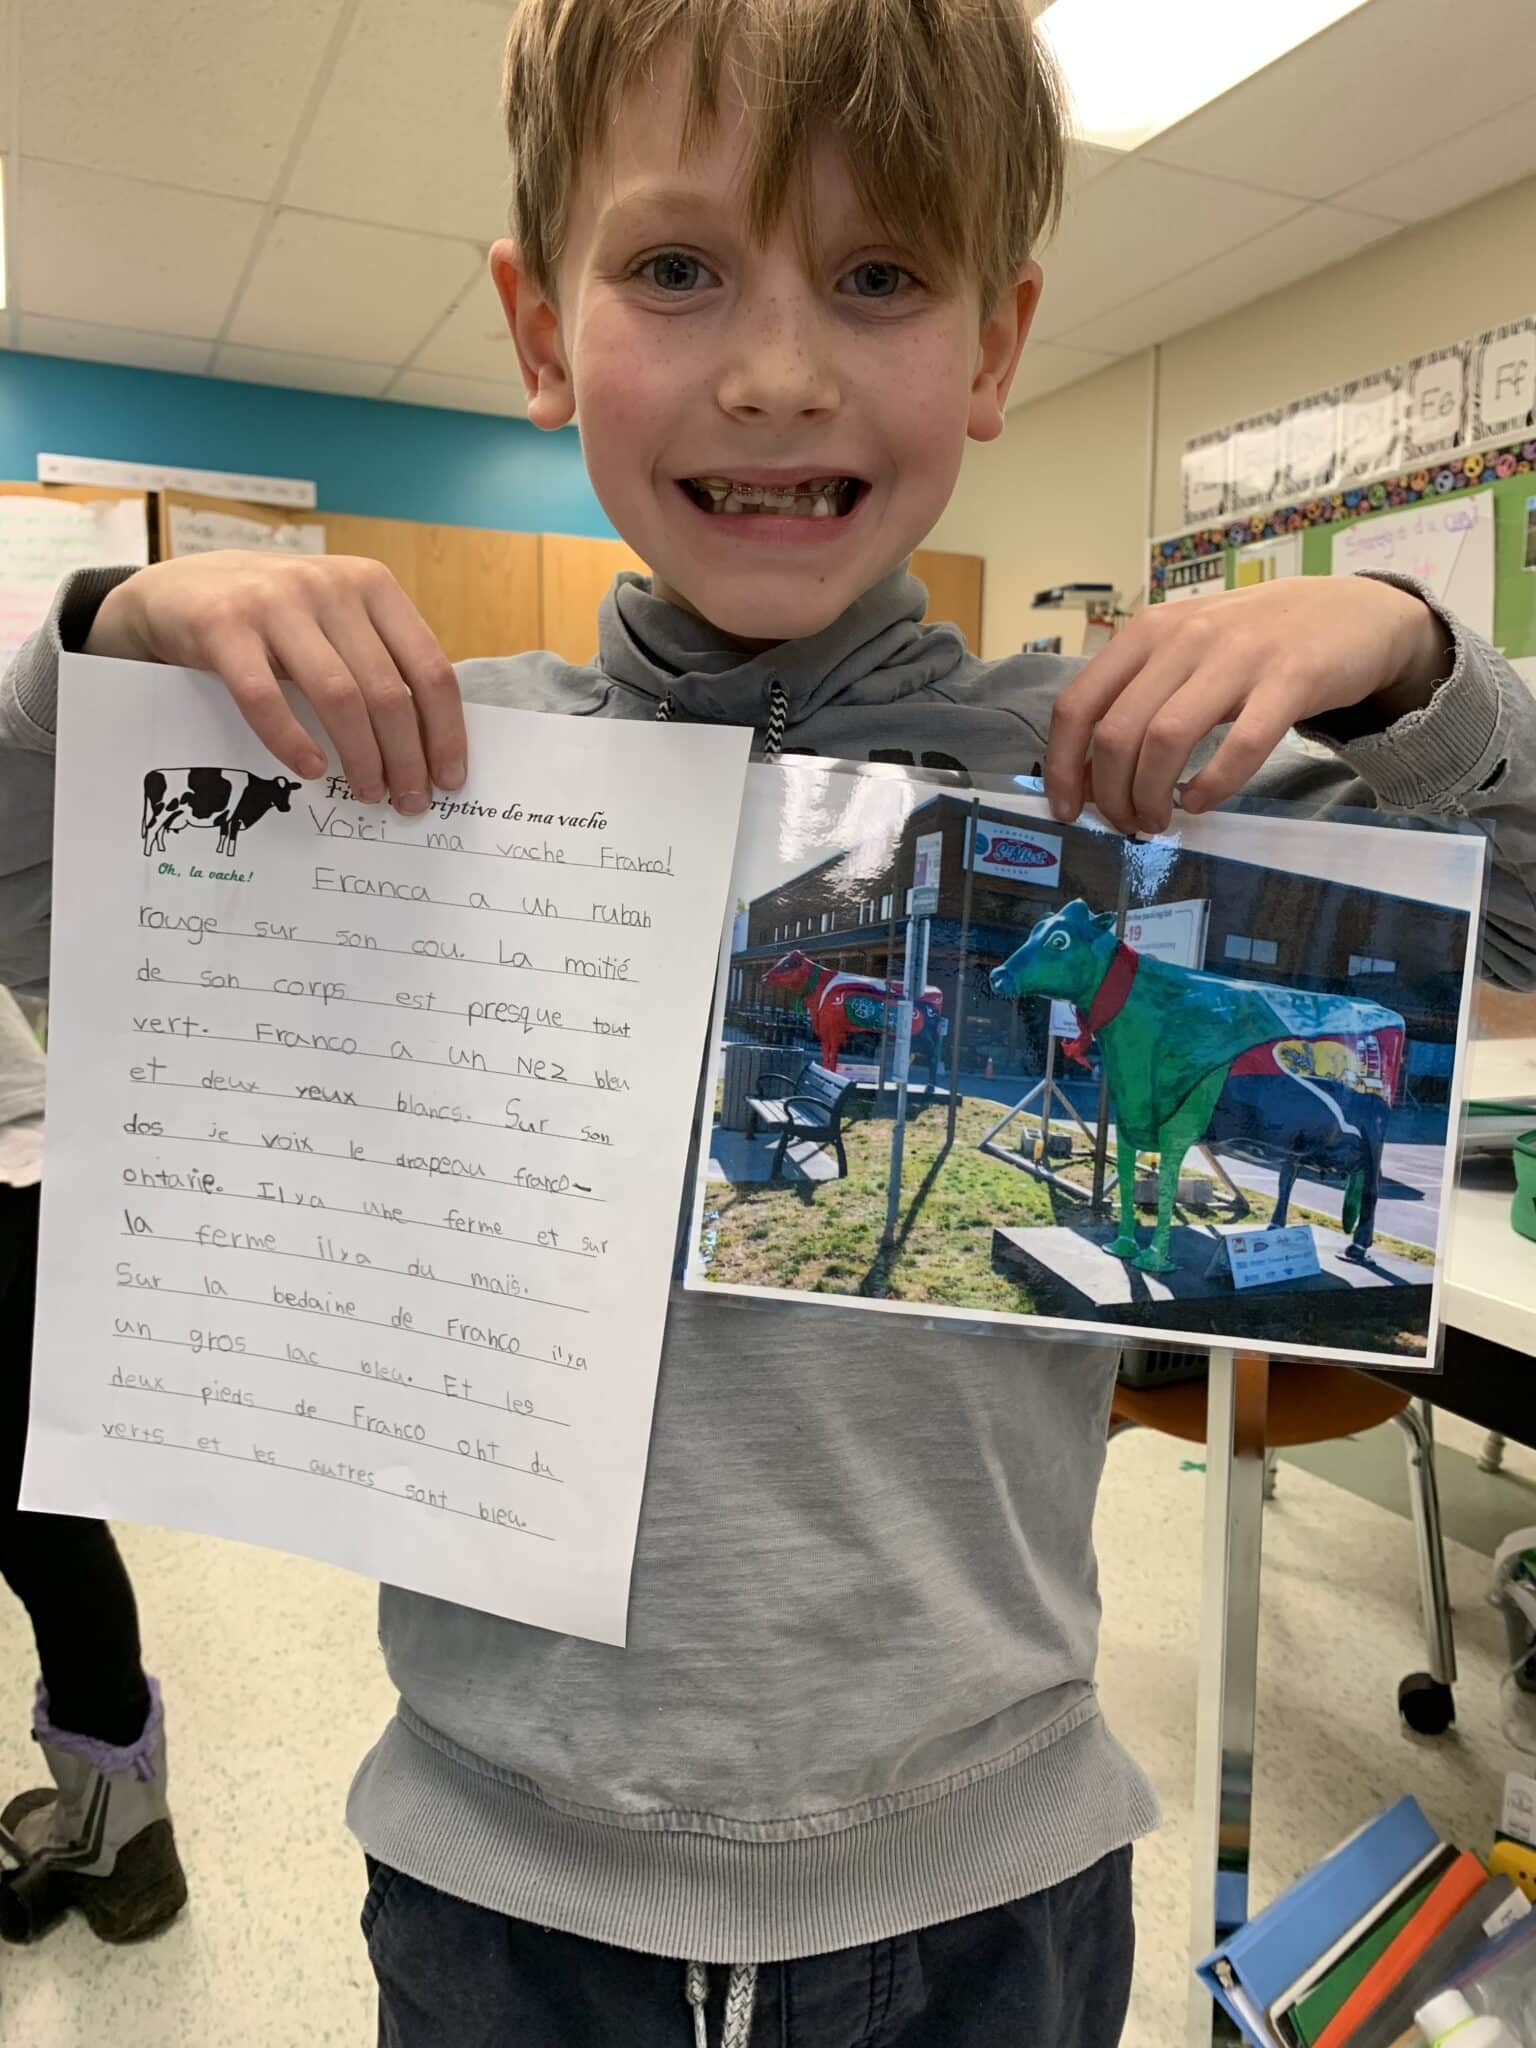 riptive de ma vache
Oh, la vache!
Voici ma vache Franco!
Franca a un ruban
rouge sur son cou. La moitié
de son corps est presque tout
vert. Franco a un nez bleu
et deux yeux blancs. Sur son
dos je voix le drapeau franco-
ontarie. Il ya une ferme et sur
la ferme il ya du maïs.
Sur la bedaine de Franco il ya
un gros lac bleu. Et les
deux pieds de Franco ont du
verts et les autres sont bleu.
St-Albert
-19
TABLEAU
Ee
Ff